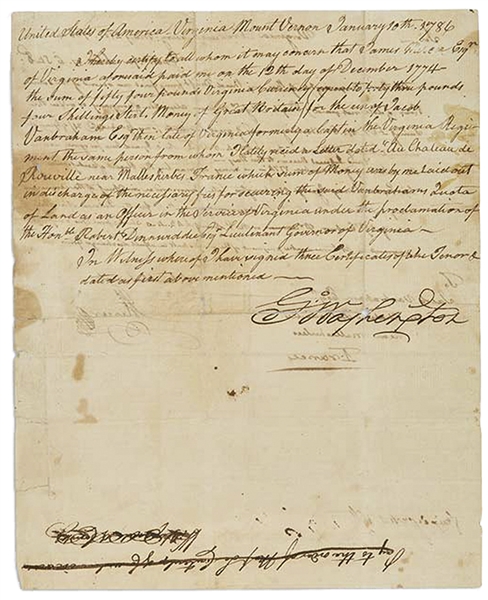 United States of America Virginia Mount Vernon January 10th. 1786
I hereby certify to all whom it may concern that James Esqr.
of Virginia aforesaid paid me on the 12th day of December 1774
the Sum of fifty four pounds Virginia Currency equal to forty three pounds
four Shillings Sterl. Money of Great Britain for the use of Jacob
Vanbraham Esqr. then late of Virginia formerly a Captn. in the Virginia Regi-
ment the same person from whom I lately recd. a Letter dated Au Chateau de
near France which Sum of Money was by me laid out
in discharge of the necessary fees for securing the said Vanbrahams Quota
of Land as an Officer in the Service of Virginia under the proclamation of
the Honble. Robert Dinwiddie Esqr. Lieutenant Governor of Virginia
In Witness whereof I have signed three Certificates of the Tenor &
dated as first above mentioned
Go. Washington
France